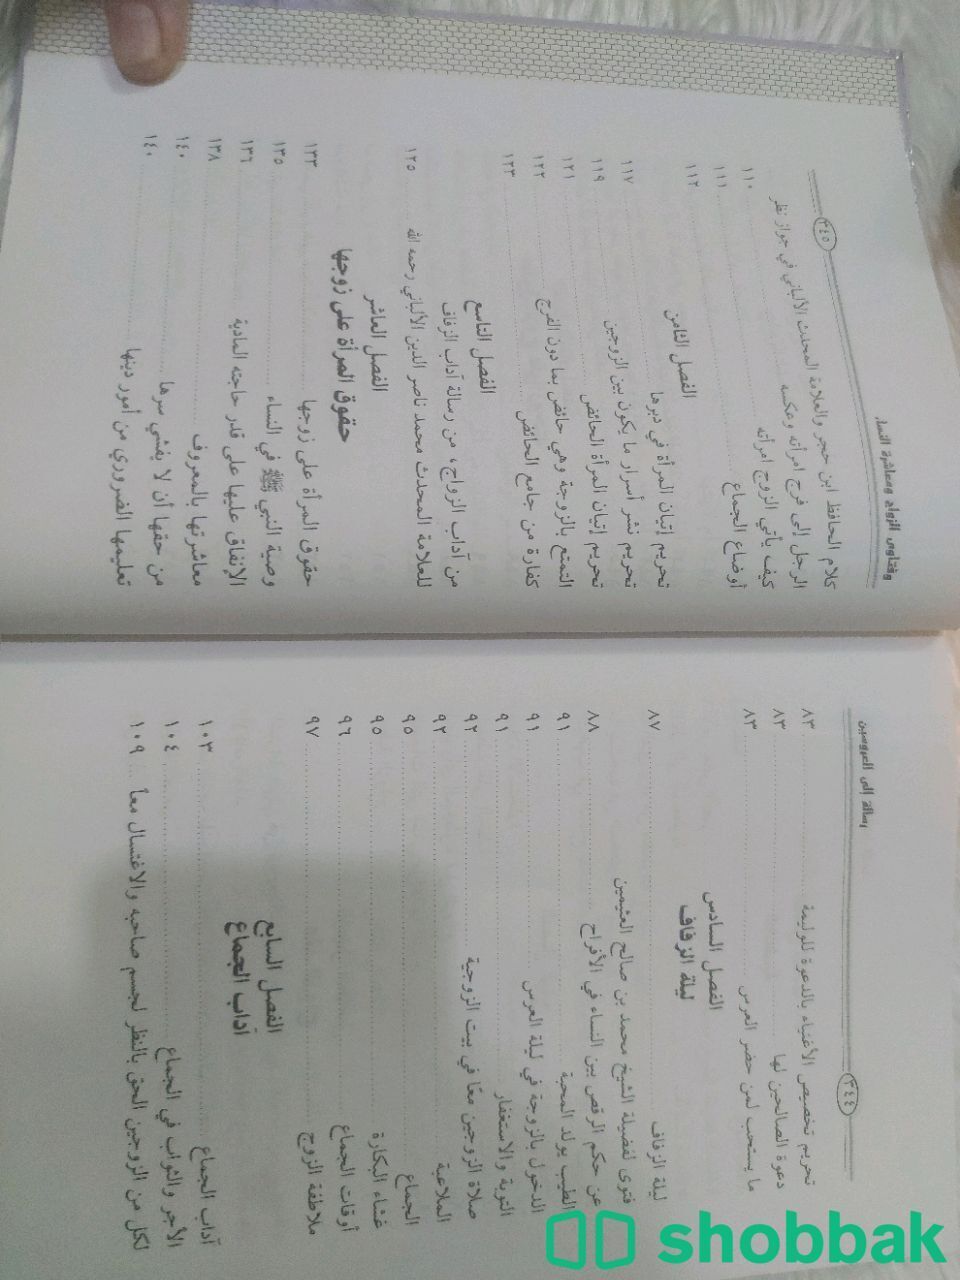 رسالة إلى العروسين
٣٤٤
تحريم تخصيص الأغنياء بالدعوة للوليمة ٨٣
دعوة الصالحين لها ٨٣
ما يستحب لمن حضر العرس ٨٣
الفصل السادس
ليلة الزفاف
ليلة الزفاف ٨٧
فتوى لفضيلة الشيخ محمد بن صالح العثيمين
عن حكم الرقص بين النساء في الأفراح ٨٨
الطيب يولد المحبة ٩١
الدخول بالزوجة في ليلة العرس ٩١
التوبة والاستغفار ٩١
صلاة الزوجين معًا في بيت الزوجية ٩٢
الملاعبة ٩٢
الجماع ٩٥
غشاء البكارة ٩٥
أوقات الجماع ٩٦
ملاطفة الزوج ٩٧
الفصل السابع
آداب الجماع
آداب الجماع ١٠٣
الأجر والثواب في الجماع ١٠٤
لكل من الزوجين الحق بالنظر لجسم صاحبه والاغتسال معاً ١٠٩
وفتاوى الزواج ومعاشرة النساء
٣٤٥
كلام الحافظ ابن حجر والعلامة المحدث الألباني في جواز نظر
الرجل إلى فرج امرأته وعكسه ١١٠
كيف يأتي الزوج امرأته ١١١
أوضاع الجماع ١١٢
الفصل الثامن
تحريم إتيان المرأة في دبرها ١١٧
تحريم نشر أسرار ما يكون بين الزوجين ١١٩
تحريم إتيان المرأة الحائض ١٢١
التمتع بالزوجة وهي حائض بما دون الفرج ١٢٢
كفارة من جامع الحائض ١٢٣
الفصل التاسع
من آداب الزواج، من رسالة آداب الزفاف
للعلامة المحدث محمد ناصر الدين الألباني رحمه الله ١٢٥
الفصل العاشر
حقوق المرأة على زوجها
حقوق المرأة على زوجها ١٣٣
وصية النبي ﷺ في النساء ١٣٥
الإنفاق عليها على قدر حاجته المادية ١٣٦
معاشرتها بالمعروف ١٣٨
من حقها أن لا يفشي سرها ١٤٠
تعليمها الضروري من أمور دينها ١٤٠
shobbak